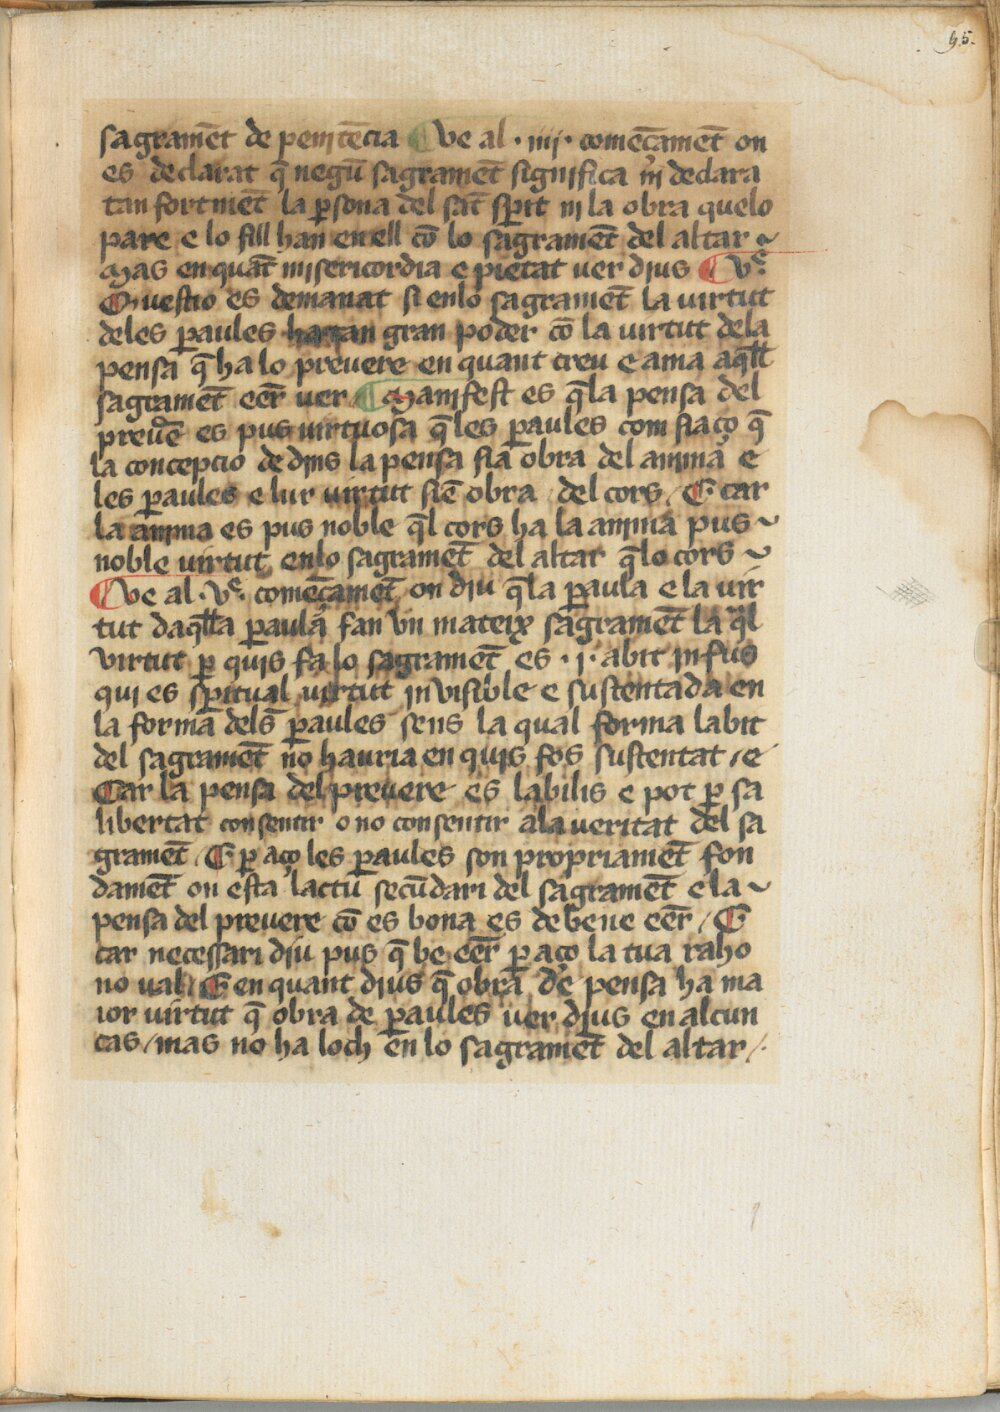 45.
sagramēt de penitēcia ¶ Ve al · iiij · comēçamēt on
es declarat q̄ negū sagramēt significa ni declara
tan fortmēt la ꝑsona del sāt sp̄it ni la obra quelo
pare e lo fill han en ell cō lo sagramēt del altar ~
Mas en quāt misericordia e pietat uer dius ¶ vͤ.
Questio es demanat si enlo sagramēt la virtut
deles ꝑaules gran poder cō la uirtut dela
pensa q̄ ha lo preuere en quant creu e ama aq̄ll
sagramēt eēr uer ¶ Manifest es q̄la pensa del
preuē es pus uirtuosa q̄les ꝑaules com sia ço q̄
la concepcio de dins la pensa sia obra del anima e
les ꝑaules e lur uirtut siē obra del cors / E car
la anima es pus noble q̄l cors ha la anima pus ~
noble uirtut enlo sagramēt del altar q̄ lo cors ~
¶ Ve al · vͤ. comēçamēt on diu q̄la ꝑaula e la uir
tut daq̄lla ꝑaula fan vn mateix sagramēt la q̄l
virtut ꝑ quis fa lo sagramēt es · j · abit infus
qui es sp̄itual uirtut inuisible e sustentada en
la forma dels ꝑaules sens la qual forma labit
del sagramēt no hauria en quis fos sustentat / e
Car la pensa del preuere es labilis e pot ꝑ sa
libertat consentir o no consentir ala ueritat del sa
gramēt / E ꝑ aço les ꝑaules son propriamēt fon
damēt on esta lactu secūdari del sagramēt e la ~
pensa del preuere cō es bona es de bene eēr / E
car necessari diu pus q̄ be eēr ꝑ aço la tua raho
no ual / E en quant dius q̄ obra de pensa ha ma
ior uirtut q̄ obra de ꝑaules uer dius en alcun
cas / mas no ha loch en lo sagramēt del altar /.